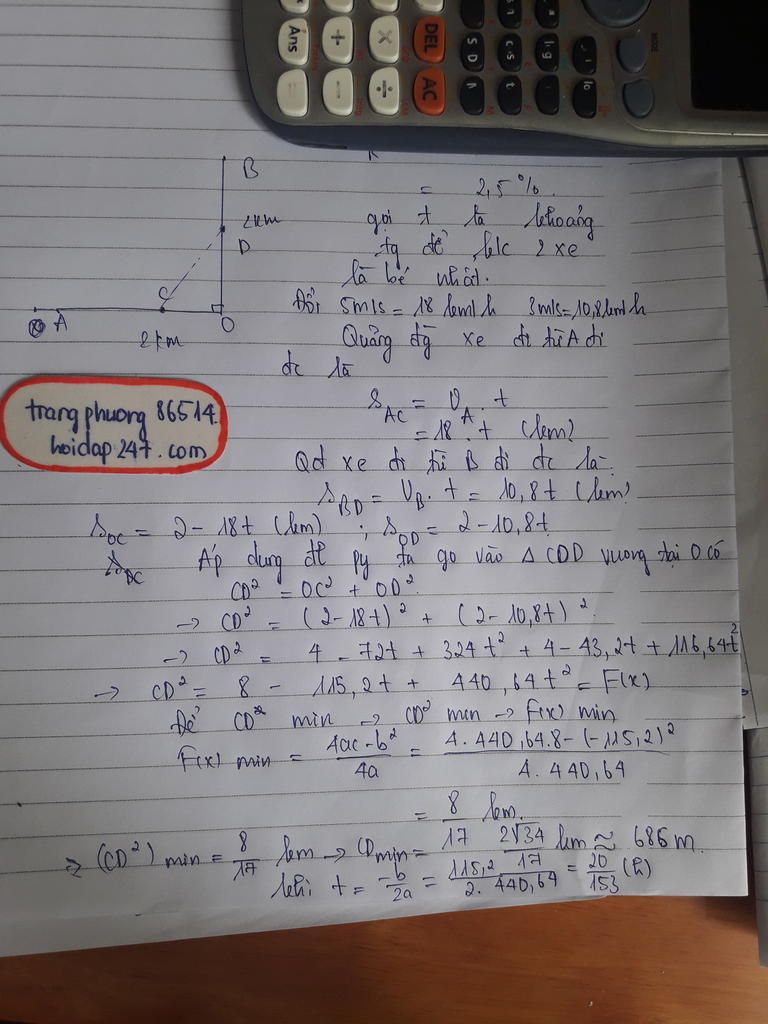 Ans
+
×
DEL
-
÷
AC
B
2km
D
C
A
O
2km
= 2,5%
gọi t là khoảng
tg để k/c 2 xe
là bé nhất.
Đổi 5m/s = 18 km/h 3m/s = 10,8km/h
Quãng đg xe đi từ A đi
đc là
S_AC = v_A . t
= 18 . t (km)
Qđ xe đi từ B đi đc là:
S_BD = v_B . t = 10,8t (km)
S_OC = 2 - 18t (km) ; S_OD = 2 - 10,8t
Áp dụng đl py ta go vào Δ COD vuông tại O có
CD² = OC² + OD²
→ CD² = (2-18t)² + (2-10,8t)²
→ CD² = 4 - 72t + 324t² + 4 - 43,2t + 116,64t²
→ CD² = 8 - 115,2t + 440,64t² = F(x)
Để CD² min → CD² min → F(x) min
F(x) min = (4ac-b²)/(4a) = (4.440,64.8-(-115,2)²)/(4.440,64)
= 8/17 km.
⇒ (CD²) min = 8/17 km → CD min = 2√34/17 km ≈ 686m.
khi t = -b/2a = 115,2/(2.440,64) = 20/153 (h)
trangphuong 86514.
hoidap247.com